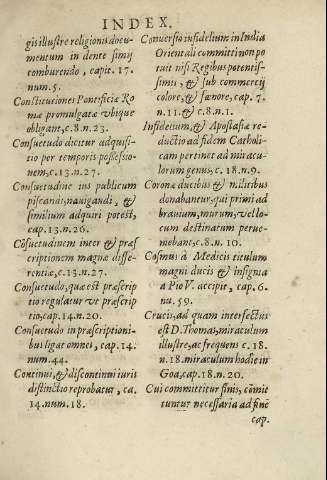 INDEX.
gis illustre religionis docu-
mentum in dente simij
comburendo, capit. 17.
num. 5.
Constitutiones Pontificiæ Ro
mæ promulgatæ vbique
obligant, c. 8. n. 23.
Consuetudo dicitur adquisi-
tio per temporis possessio-
nem, c. 13. n. 27.
Consuetudine ius publicum
piscandi, nauigandi, &
similium adquiri potest,
cap. 13. n. 26.
Cõsuetudinem inter & præs
criptionem magna diffe-
rentia, c. 13. n. 27.
Consuetudo, quæ est præscrip
tio regulatur vt præscrip
tio, cap. 14. n. 20.
Consuetudo in præscriptioni-
bus ligat omnes, cap. 14.
num. 44.
Continui, & discontinui iuris
distinctio reprobatur, ca.
14. num. 18.
Conuersio infidelium in India
Orientali committi non po
tuit nisi Regibus potentis-
simis, & sub commercij
colore, & fænore, cap. 7.
n. 11. & c. 8. n. 1.
Infidelium, & Apostasiæ re-
ductio ad fidem Catholi-
cam pertinet ad miracu-
lorum genus, c. 18. n. 9.
Coronæ ducibus & militibus
donabantur, qui primi ad
brauium, murum, vel lo-
cum destinatum perue-
niebant, c. 8. n. 10.
Cosmus à Medicis titulum
magni ducis & insignia
a Pio V. accipit, cap. 6.
nu. 59.
Crucis, ad quam interfectus
est D. Thomas, miraculum
illustre, ac frequens c. 18.
n. 18. miraculum hodie in
Goa, cap. 18. n. 20.
Cui committitur finis, cõmit
tuntur necessaria ad finẽ
cap.